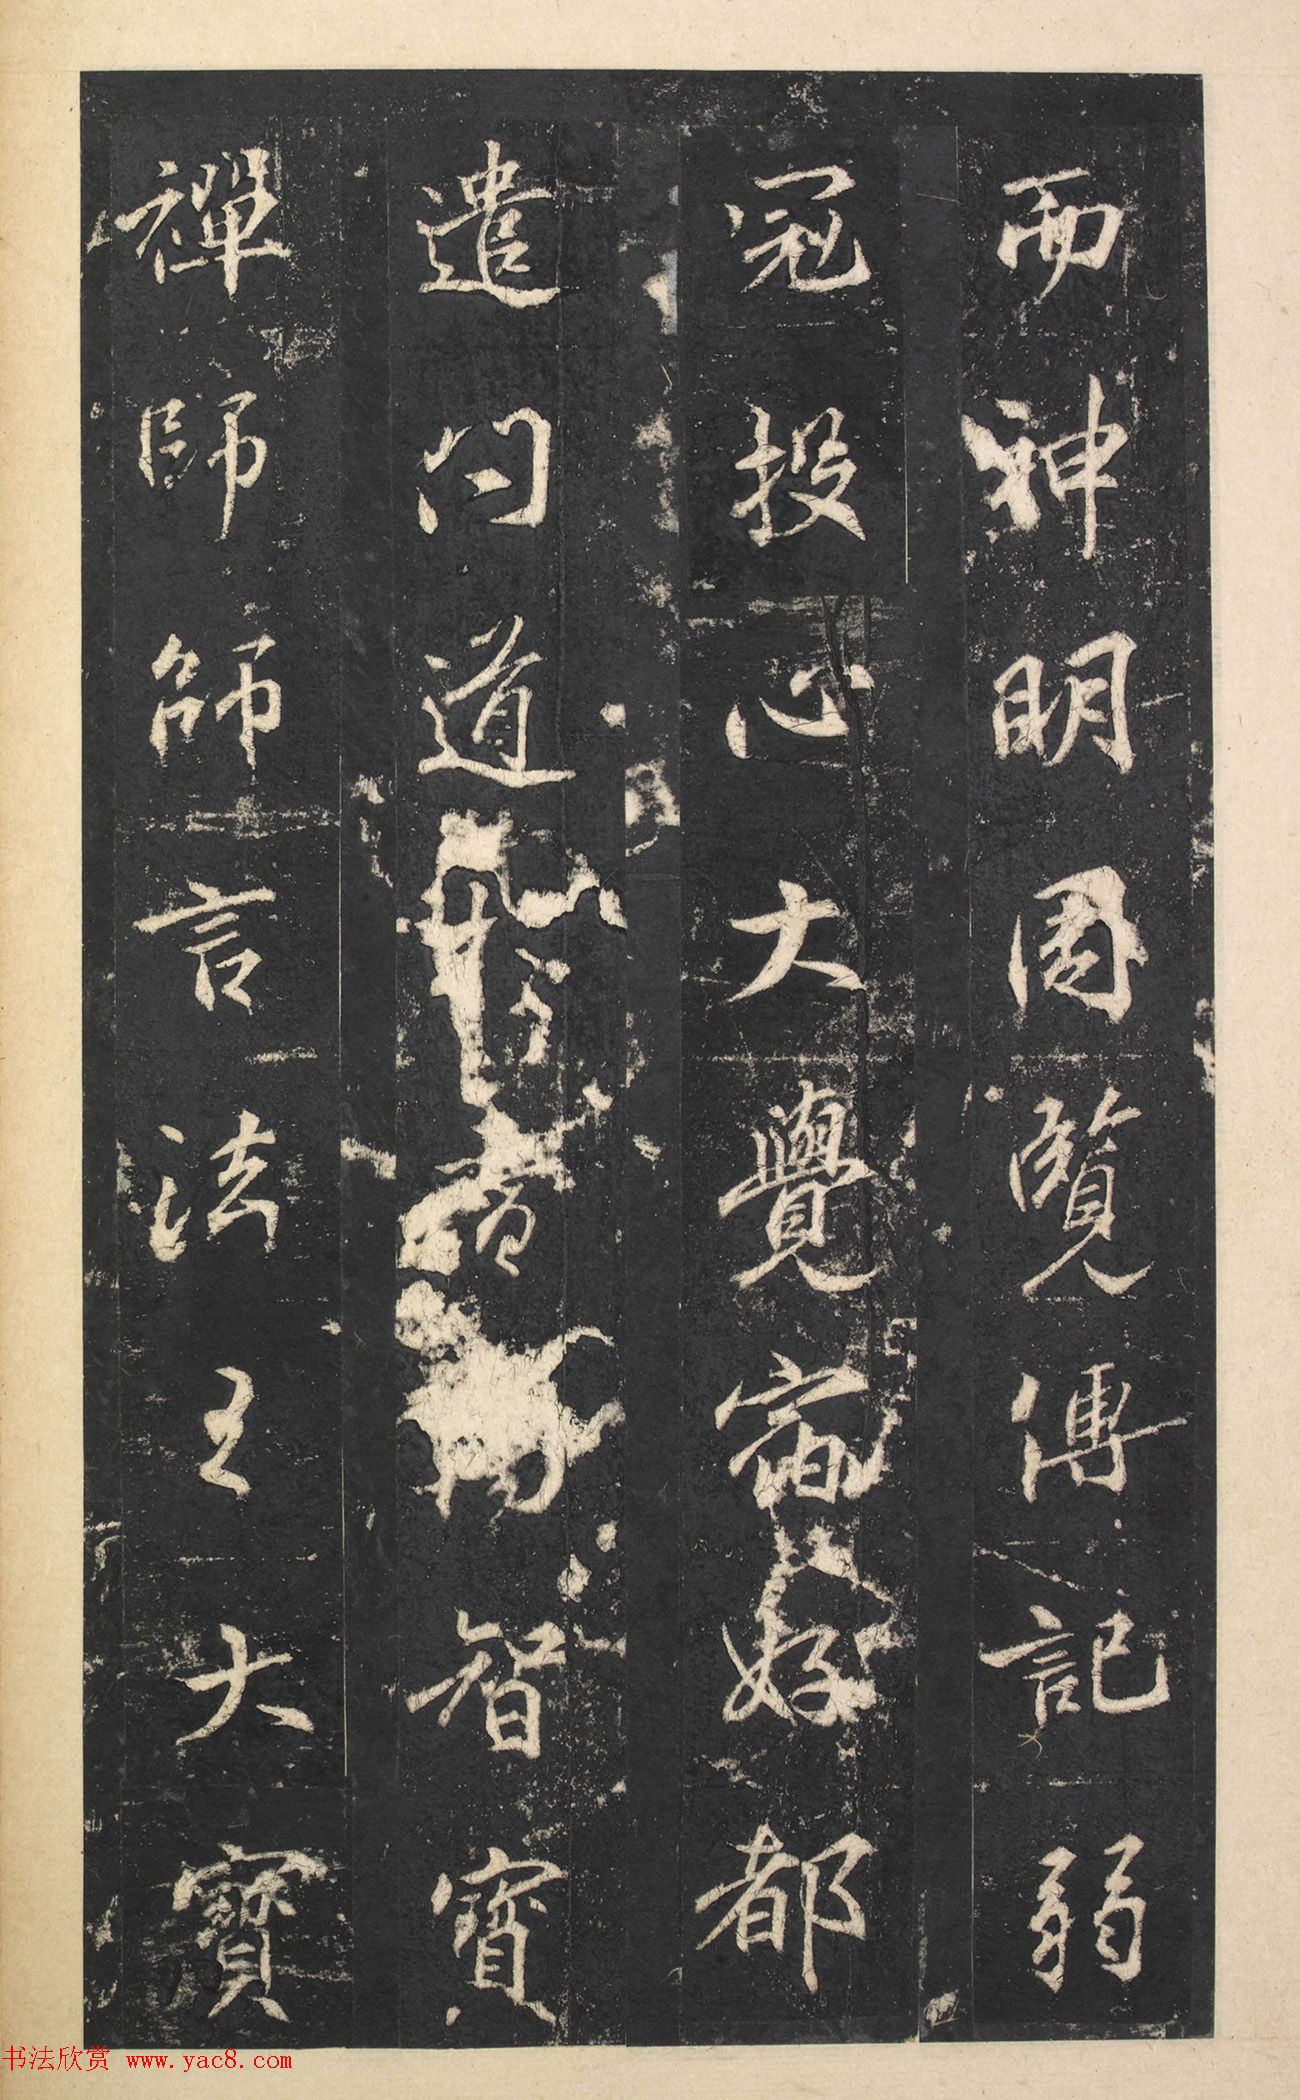 而神明周覽傳記弱
冠投心大覺宿好都
遣問道陽智寶
禪師師言法王大寶
书法欣赏 www.yac8.com